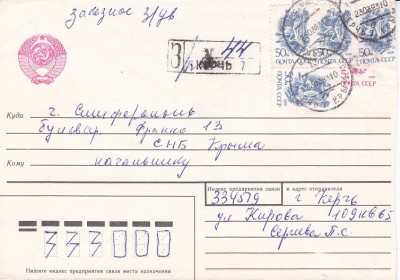 Заказное з/ув
З КЕРЧЬ 7
44
50к ПОЧТА СССР
50к ПОЧТА СССР
50к ПОЧТА СССР
50к ПОЧТА СССР
Куда г. Симферополь
бульвар Франко 13
СНБ Крыма
Кому начальнику
Индекс предприятия связи и адрес отправителя
334519 г Керчь
ул Кирова 109 кв 65
Сергеева П.С.
333000
Пишите индекс предприятия связи места назначения